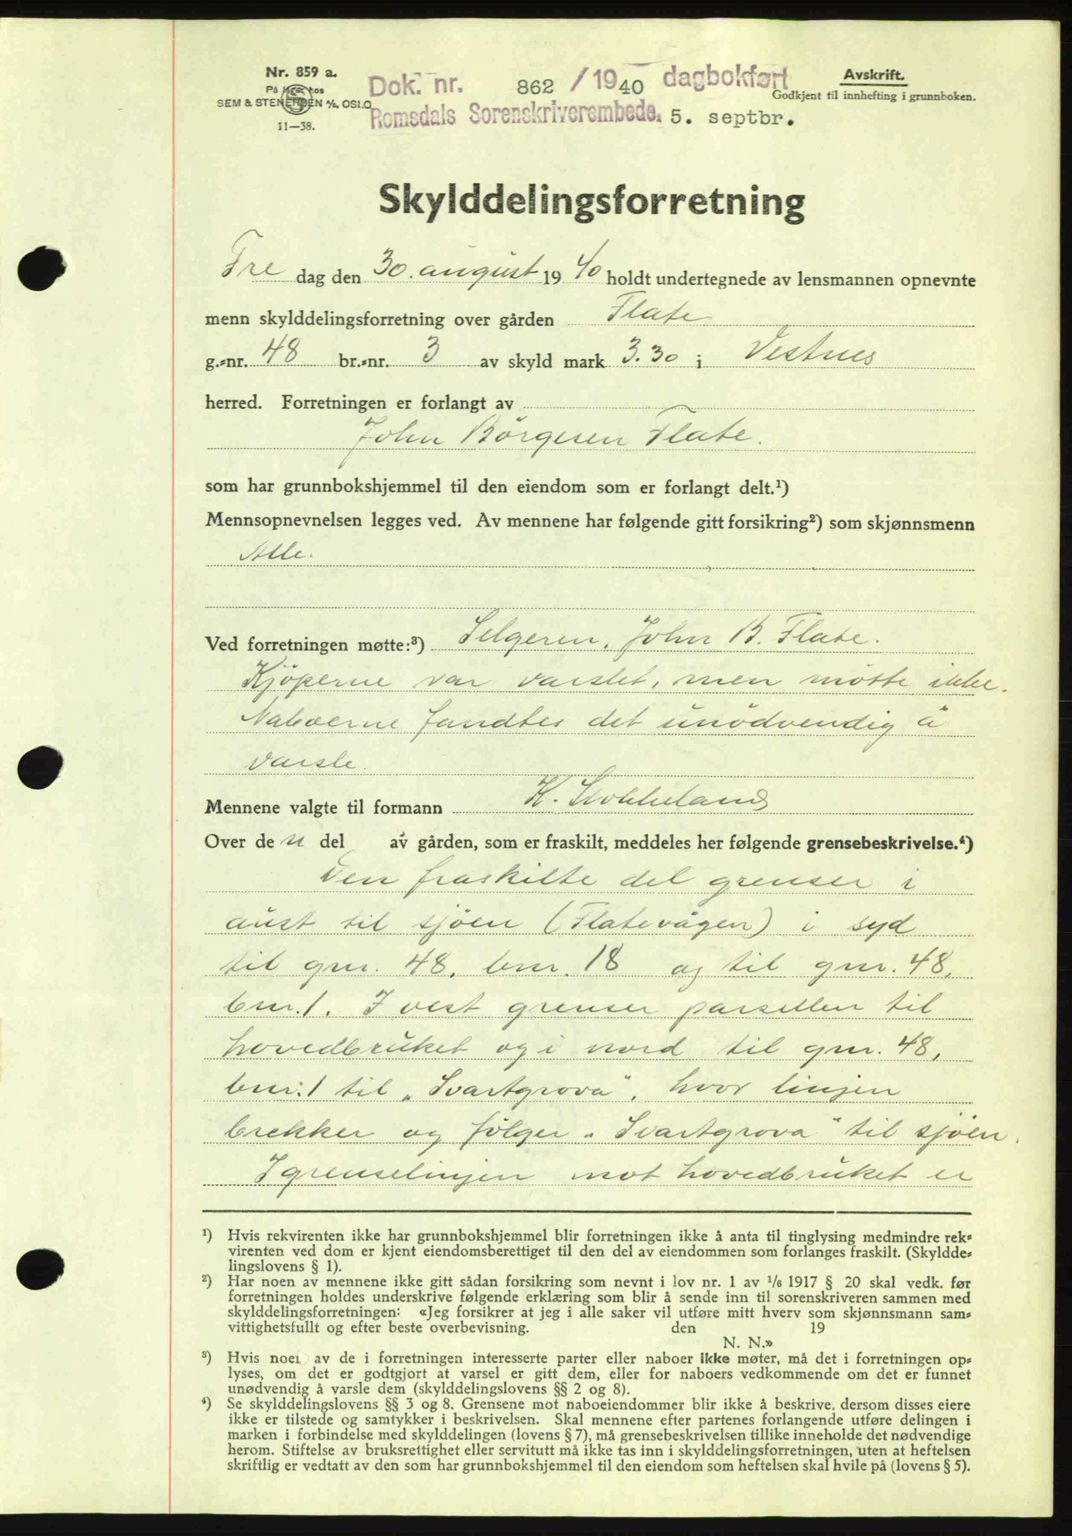 Nr. 859 a.
På lager hos
SEM & STENERSEN A/S, OSLO
11—38.
Dok. nr. 862 / 1940 dagbokført
Romsdals Sorenskriverembede. 5. septbr.
Avskrift.
Godkjent til innhefting i grunnboken.
Skylddelingsforretning
Fre dag den 30. august 1940 holdt undertegnede av lensmannen opnevnte
menn skylddelingsforretning over gården Flate
g.-nr. 48 br.-nr. 3 av skyld mark 3.30 i Vestnes
herred. Forretningen er forlangt av
John Börgesen Flate.
som har grunnbokshjemmel til den eiendom som er forlangt delt.¹)
Mennsopnevnelsen legges ved. Av mennene har følgende gitt forsikring²) som skjønnsmenn
Alle.
Ved forretningen møtte:³) Selgeren, John B. Flate.
Kjöperne var varslet, men mötte ikke.
Naboerne fandtes det unödvendig å
varsle.
Mennene valgte til formann K. Stokkeland
Over de n del av gården, som er fraskilt, meddeles her følgende grensebeskrivelse.⁴)
Den fraskilte del grenser i
aust til sjöen (Flatevågen) i syd
til gnr. 48, bnr. 18 og til gnr. 48,
bnr. 1. I vest grenser parsellen til
hovedbruket og i nord til gnr. 48,
bnr. 1 til „Svartgrova", hvor linjen
brekker og fölger „Svartgrova" til sjöen.
I grenselinjen mot hovedbruket er
¹) Hvis rekvirenten ikke har grunnbokshjemmel blir forretningen ikke å anta til tinglysing medmindre rek-
virenten ved dom er kjent eiendomsberettiget til den del av eiendommen som forlanges fraskilt. (Skyldde-
lingslovens § 1).
²) Har noen av mennene ikke gitt sådan forsikring som nevnt i lov nr. 1 av ¹/₆ 1917 § 20 skal vedk. før
forretningen holdes underskrive følgende erklæring som blir å sende inn til sorenskriveren sammen med
skylddelingsforretningen: «Jeg forsikrer at jeg i alle saker vil utføre mitt hverv som skjønnsmann sam-
vittighetsfullt og efter beste overbevisning. den 19
N. N.»
³) Hvis noen av de i forretningen interesserte parter eller naboer ikke møter, må det i forretningen op-
lyses, om det er godtgjort at varsel er gitt dem, eller for naboers vedkommende om det er funnet
unødvendig å varsle dem (skylddelingslovens §§ 2 og 8).
⁴) Se skylddelingslovens §§ 3 og 8. Grensene mot naboeiendommer blir ikke å beskrive, dersom disses eiere
ikke er tilstede og samtykker i beskrivelsen. Skal mennene efter partenes forlangende utføre delingen i
marken i forbindelse med skylddelingen (lovens § 7), må grensebeskrivelsen tillike inneholde det nødvendige
herom. Stiftelse av bruksrettighet eller servitutt må ikke tas inn i skylddelingsforretningen, uten at heftelsen
skriftlig er vedtatt av den som har grunnbokshjemmel til den eiendom som heftelsen skal hvile på (lovens § 5).